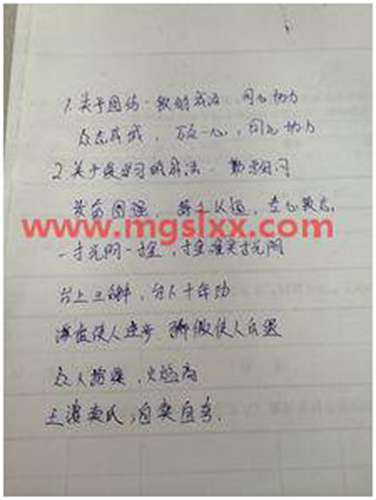 1.关于团结一致的成语:同心协力
众志成城,万众一心,同心协力
2.关于学习的成语:勤学好问
发奋图强,专心致志
www.mgslxx.com
一寸光阴一寸金,寸金难买寸光阴
台上三分钟,台下十年功
虚心使人进步 骄傲使人落后
众人拾柴,火焰高
王婆卖瓜,自卖自夸.